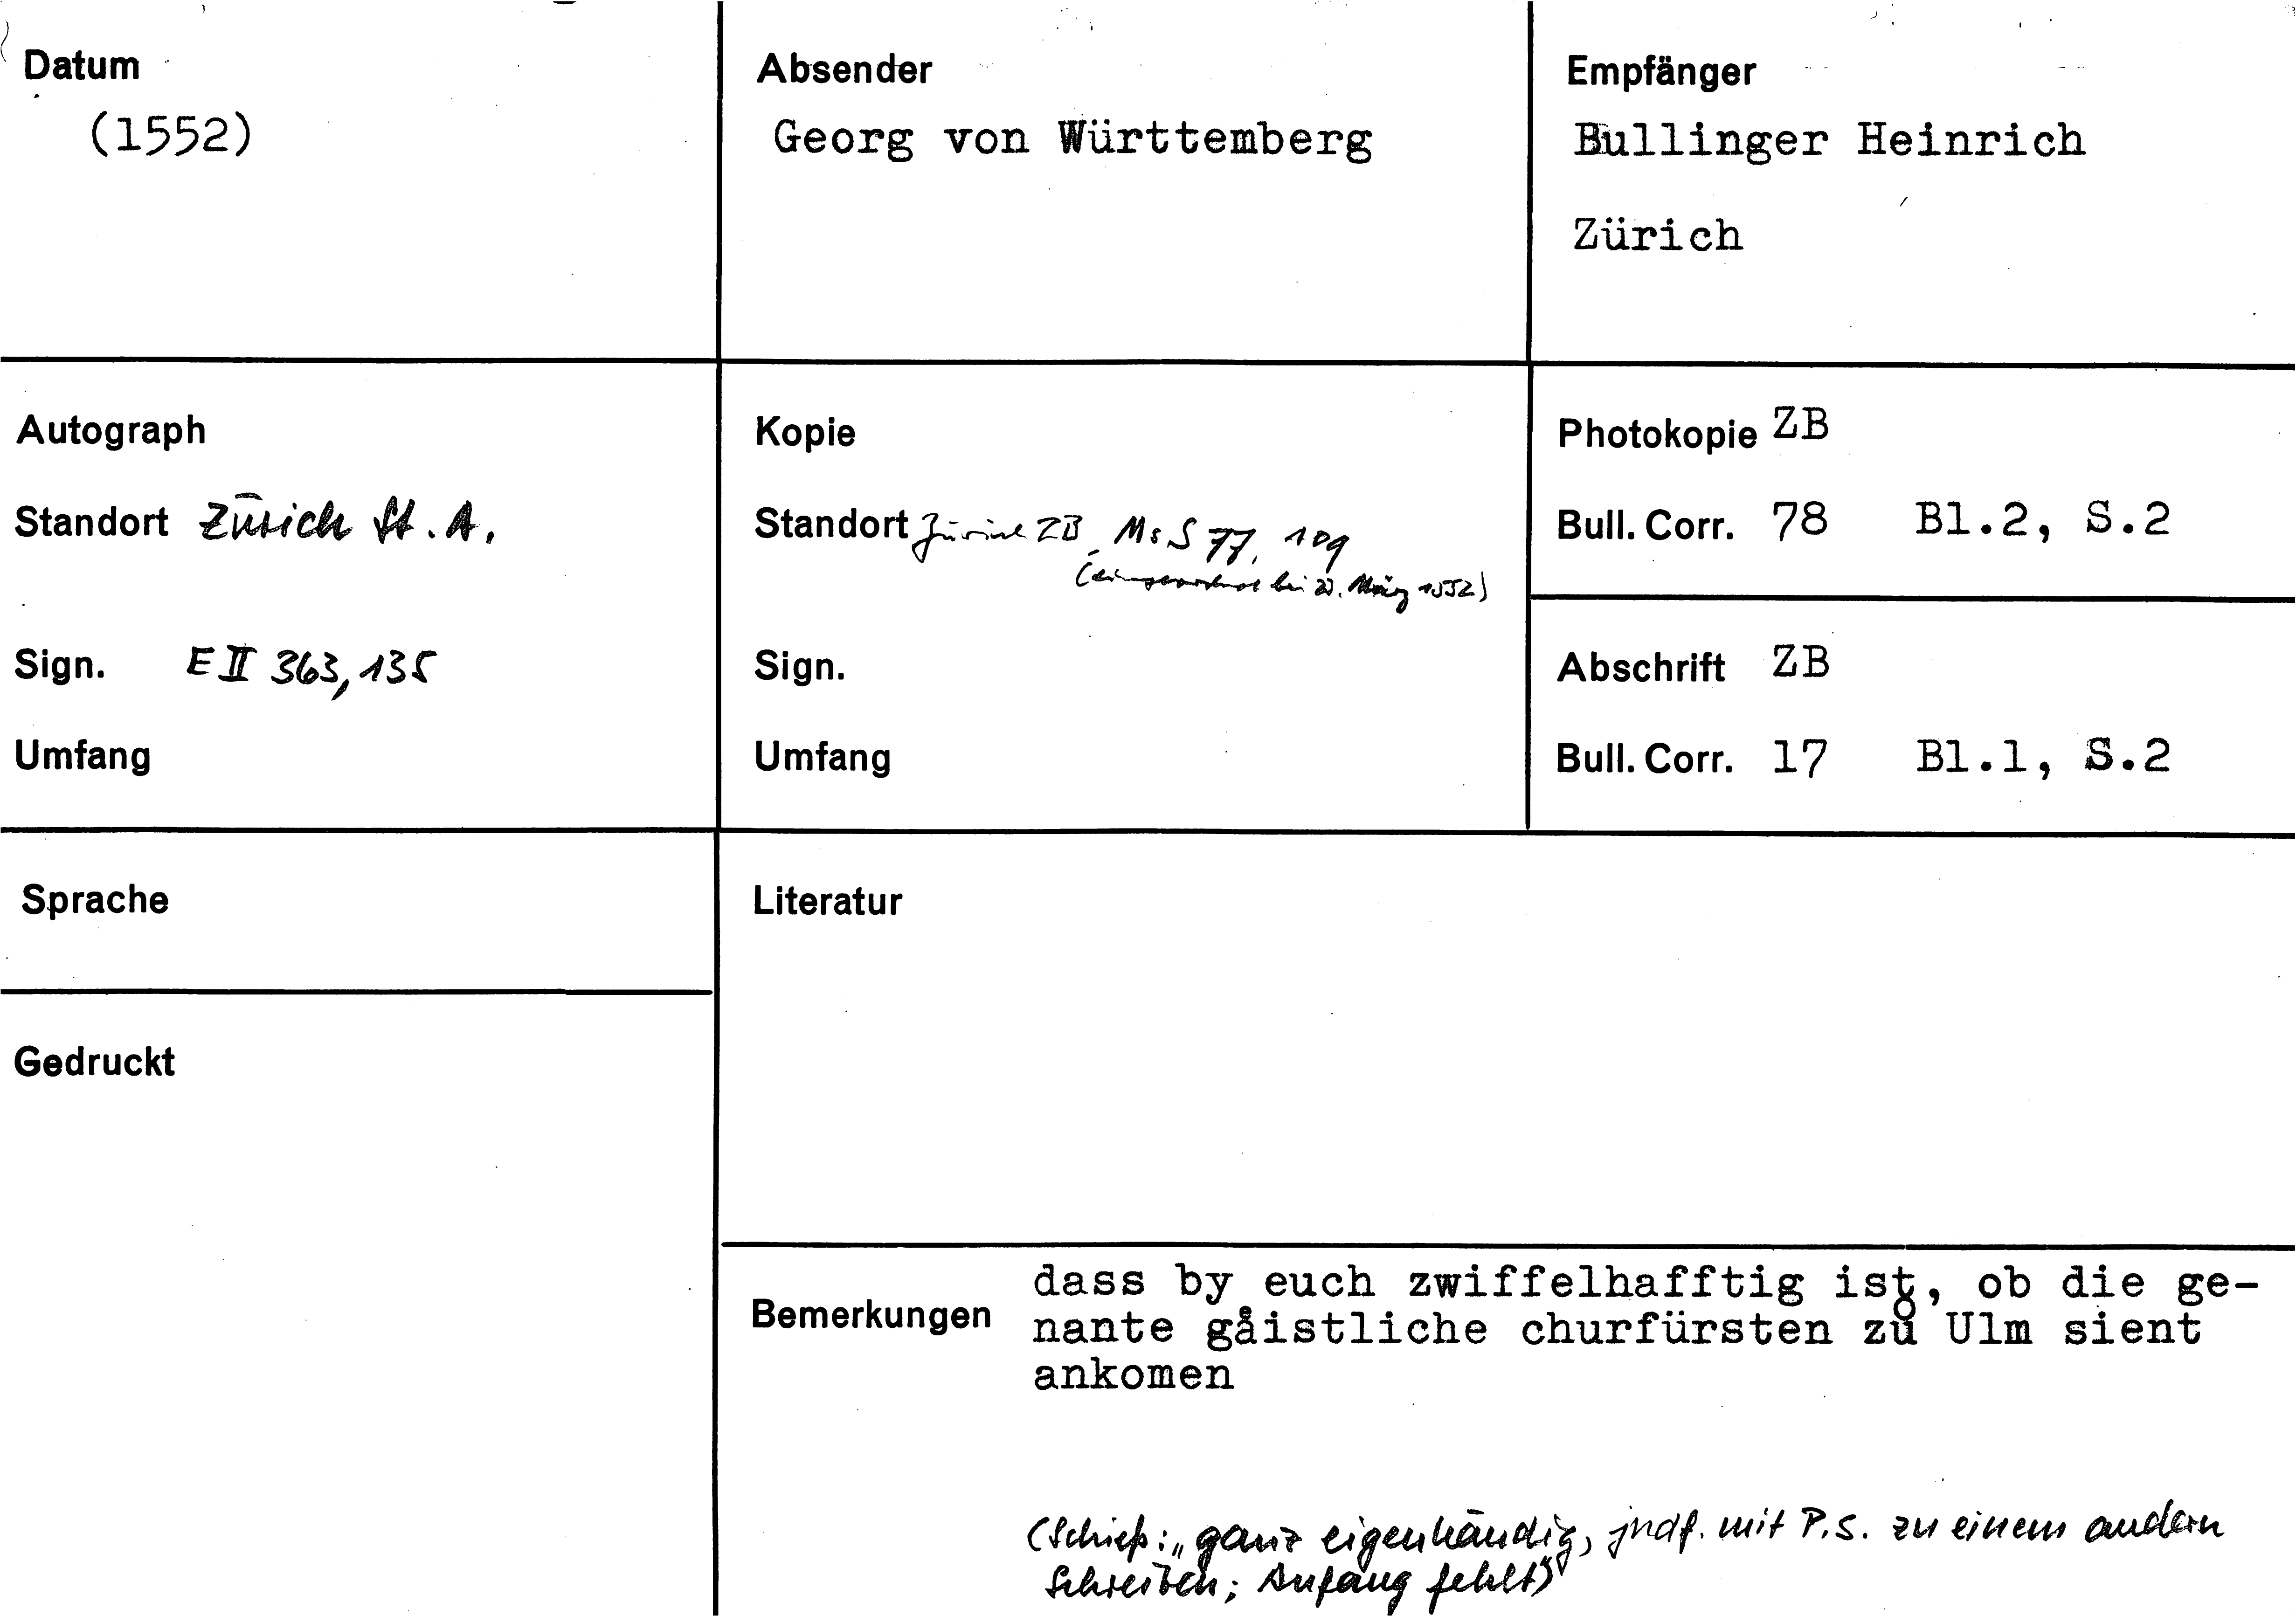 Datum
(1552)
Absender
Georg von Württemberg
Empfänger
Bullinger Heinrich
Zürich
Autograph
Standort Zürich St. A.
Sign. E II 363, 135
Umfang
Kopie
Standort Zürich ZB Ms S 77, 109
(eingeordnet bei März 1552)
Sign.
Umfang
Photokopie ZB
Bull. Corr. 78 Bl.2, S.2
Abschrift ZB
Bull. Corr. 17 Bl.1, S.2
Sprache
Gedruckt
Literatur
Bemerkungen
dass by euch zwiffelhafftig ist, ob die ge-
nante gåistliche churfürsten zů Ulm sient
ankomen
(Schieß: „ganz eigenhändig, mit P.S. zu einem andern
Schreiben; Anfang fehlt")